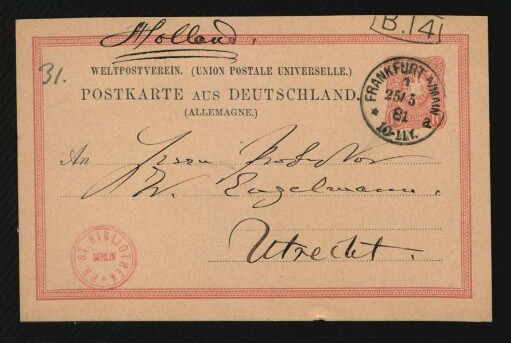 B. 14
Holland.
31.
WELTPOSTVEREIN. (UNION POSTALE UNIVERSELLE.)
POSTKARTE AUS DEUTSCHLAND.
(ALLEMAGNE.)
FRANKFURT A/MAIN
1
25/5
81
10-11V.
a
An Herrn Professor
W. Engelmann.
Utrecht.
PR. ST. BIBLIOTHEK
BERLIN